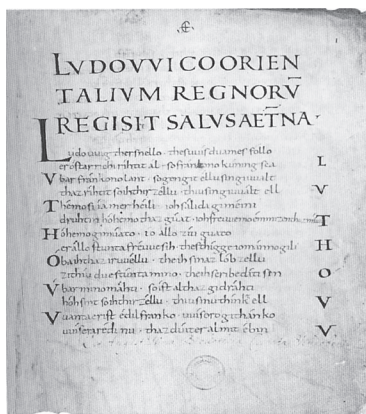 LVDOVVICO ORIEN
TALIVM REGNORV̄
REGI SIT SALVS AET̄NA·
Ludouuig ther snello · thes uuisduames follo L
er ostarrichi rihtit al · so frankono kuning scal
Vbar frankono lant · so gengit ellu sin giuualt V
thaz rihtit soih thir zellu · thiu sin giuualt ell
Themo si iamer heili · ioh salida gimeini T
druhtin hohe mo thaz guat · ioh freuue mo emmizen
Hohe mo gimuato · io allo ziti guato H
er allo stunta freuue sih · thes thigge io mannogilih
Oba ih thaz iruuellu · theih sinaz lob zellu O
zithiu due stunta mino · theih scribe dati sin
Vbar mino mahti · so ist al thaz gidrahti V
hoh sint so ih thir zellu · thiu sinu think ell
Vuanta er ist edil franko · uuisero githanko V
uuisera redinu · thaz duit er al mit ebin